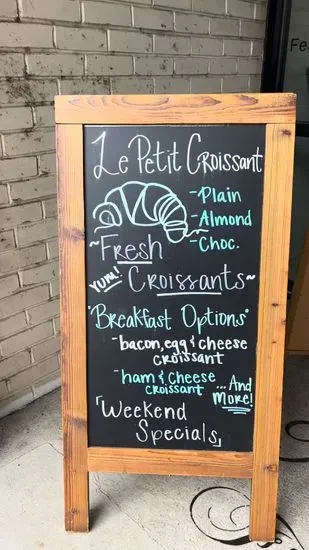 Le Petit Croissant
-Plain
-Almond
-Choc.
~Fresh
YUM!
Croissants~
"Breakfast Options"
-bacon, egg & cheese
croissant
-ham & cheese
croissant
...And
More!
「Weekend
Specials」
Fea